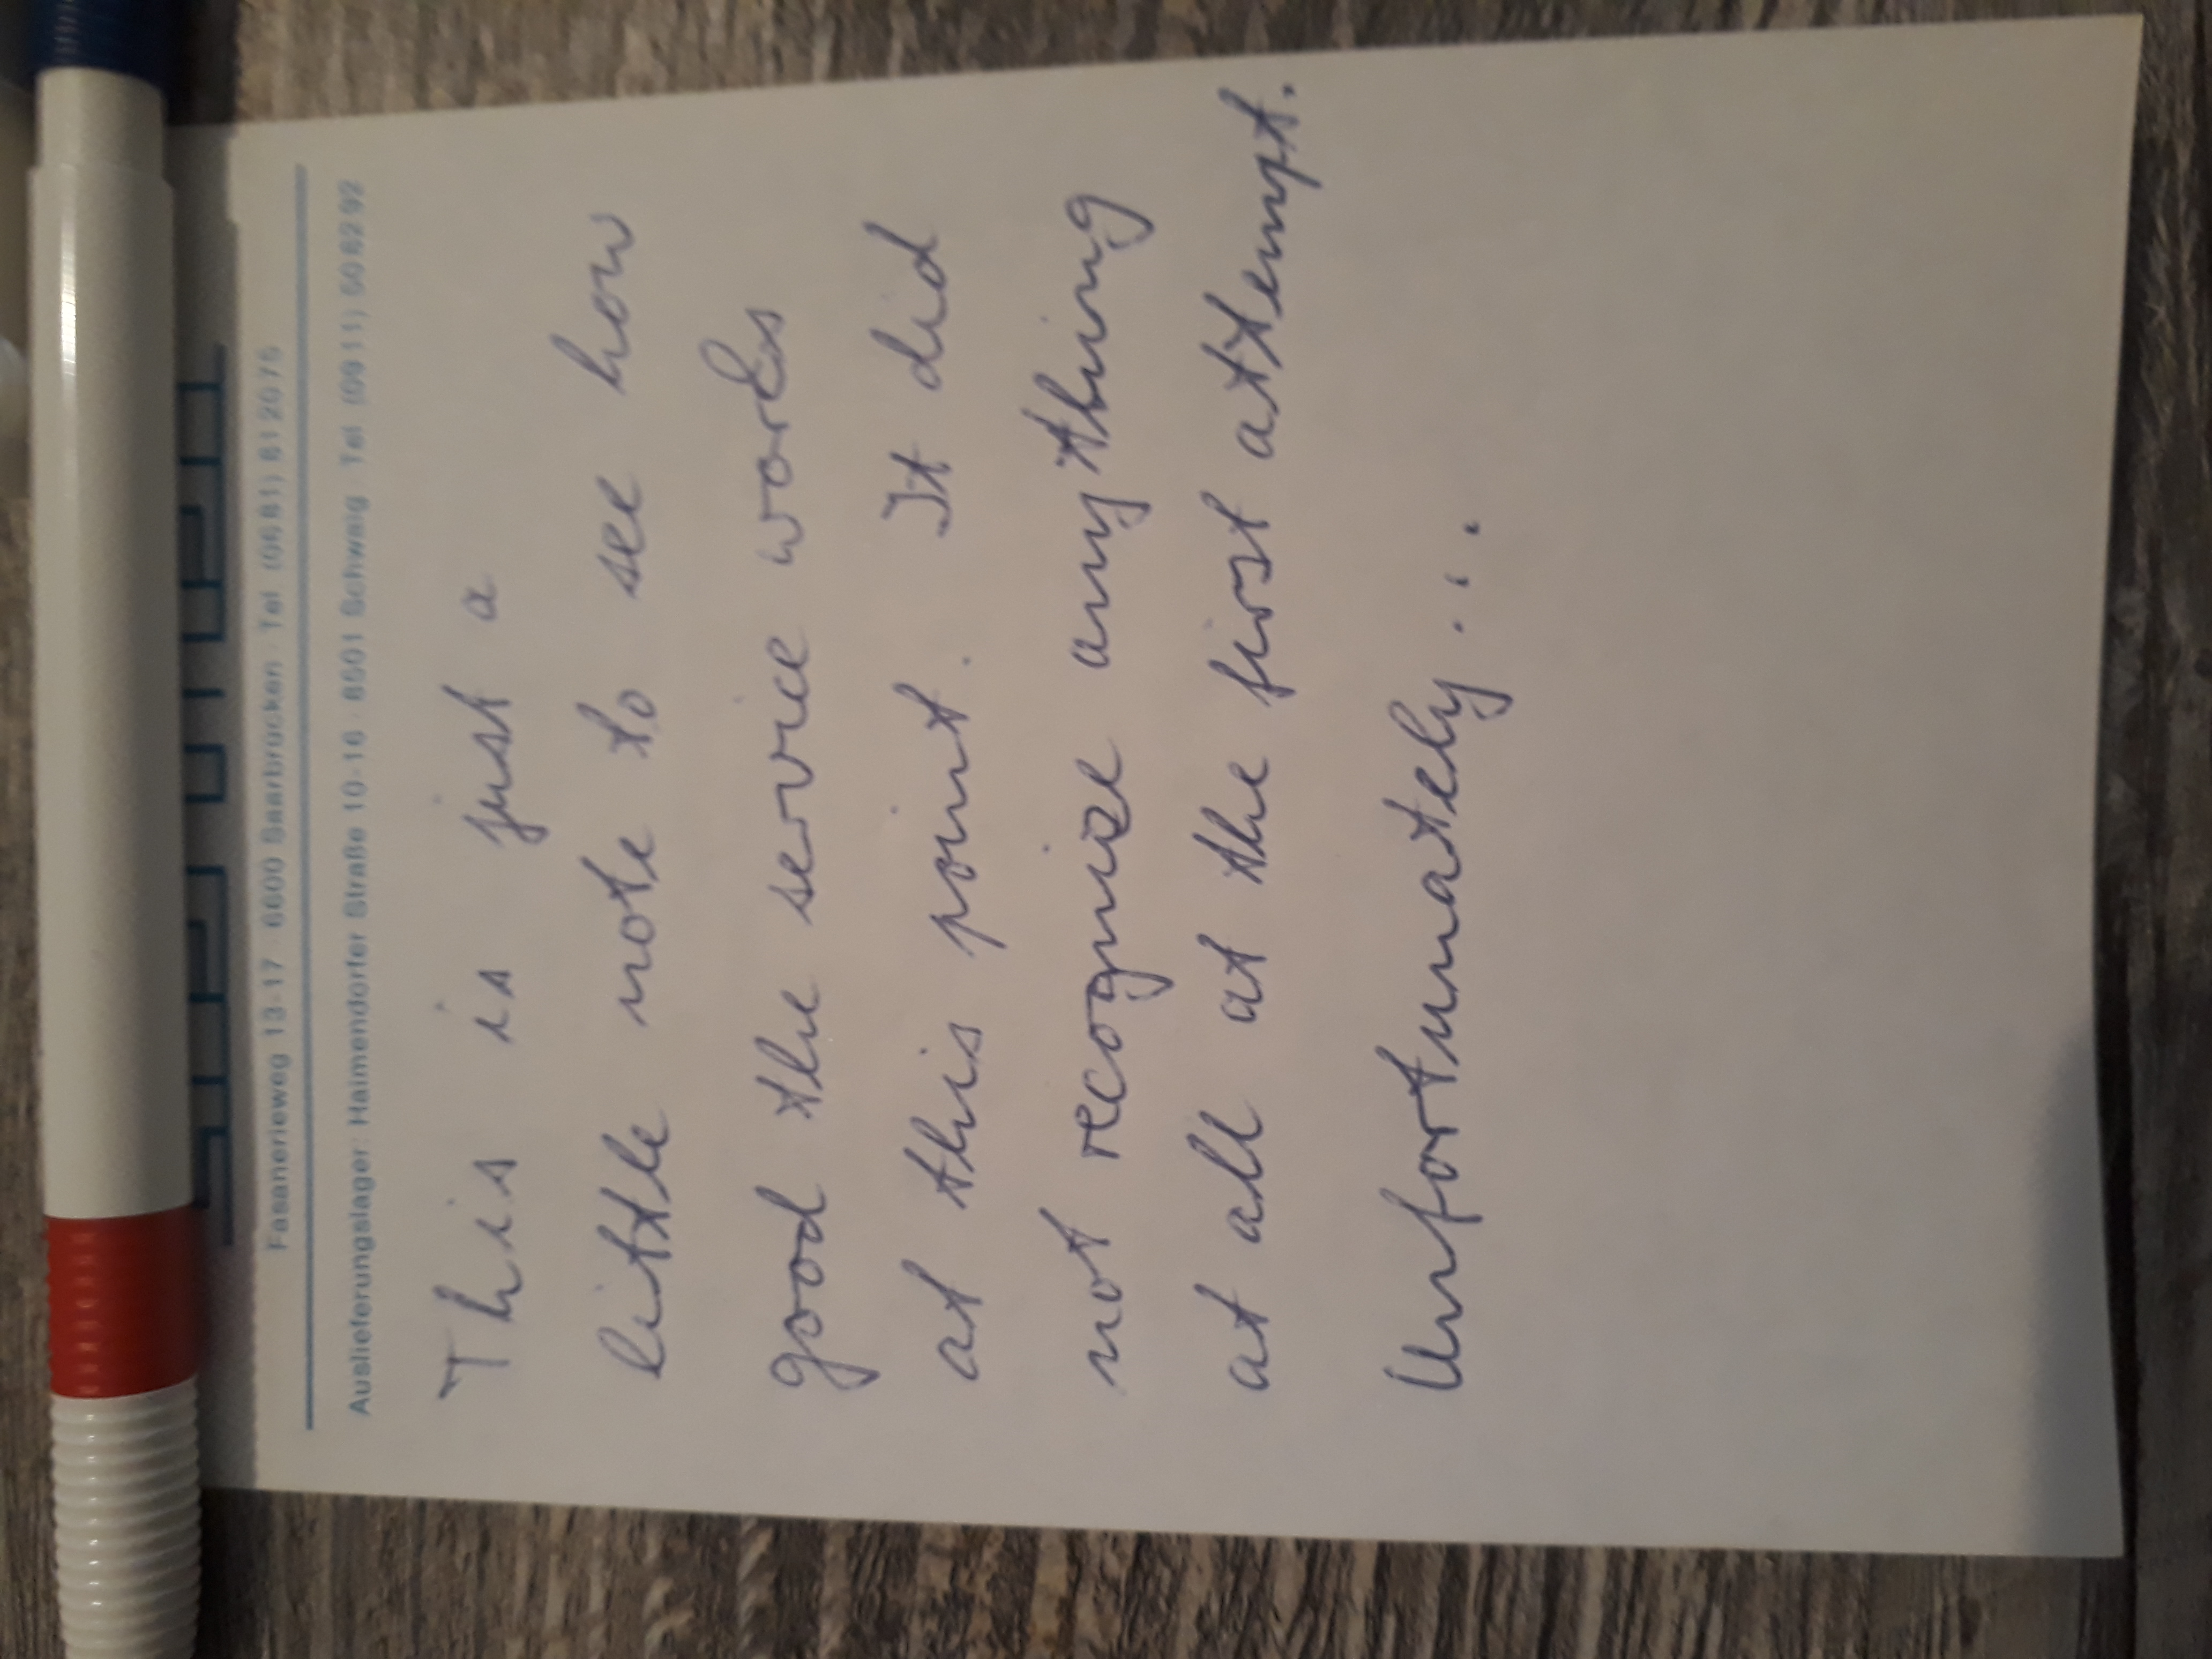 Fasanerieweg 13-17 · 6600 Saarbrücken · Tel. (06 81) 81 20 75
Auslieferungslager: Haimendorfer Straße 10-16 · 8501 Schwaig · Tel. (09 11) 50 82 92
This is just a
little note to see how
good the service works
at this point. It did
not recognize anything
at all at the first attempt.
Unfortunately...